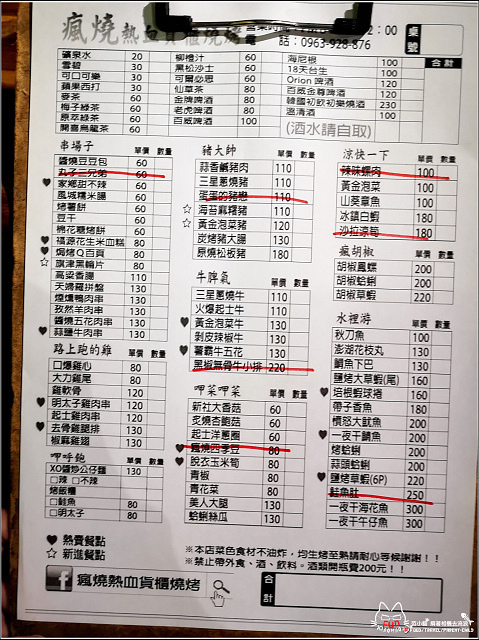 瘋燒熱血貨櫃燒烤
話：0963-928-876
桌號
合計
礦泉水 20
雪碧 30
可口可樂 30
蘋果西打 30
麥茶 30
梅子綠茶 30
原萃綠茶 30
開喜烏龍茶 30
柳橙汁 60
黑松沙士 60
可爾必思 60
仙草茶 60
金牌啤酒 60
老虎啤酒 80
百威啤酒 100
海尼根 100
18天台生 100
Orion 啤酒 120
百威金尊啤酒 120
韓國初飲初樂燒酒 230
邀清酒 100
(酒水請自取)
串場子 單價 數量
醬燒豆豆包 60
丸子三兄弟 60
家鄉甜不辣 60
風城糯米腸 60
烤薯餅 60
豆干 60
棉花糖烤餅 60
福源花生米血糕 80
焗烤Q百頁 80
旗津黑輪片 80
高粱香腸 110
天婦羅拼盤 130
煙燻鴨肉串 130
孜然羊肉串 130
醬燒五花肉串 130
蒜鹽牛肉串 130
路上跑的雞 單價 數量
口爆雞心 80
大刀雞尾 80
雞軟骨 120
明太子雞肉串 120
起士雞肉串 120
去骨雞腿排 130
椒麻雞翅 130
呷呼飽 單價 數量
XO醬炒公仔麵 130
□辣 □不辣
烤飯糰
□鮭魚 80
□明太子 80
豬大帥 單價 數量
蒜香鹹豬肉 110
三星蔥燒豬 110
蛋蛋的豬戀 110
海苔麻糬豬 110
黃金泡菜豬 120
炭烤豬大腸 130
原燒松板豬 180
牛脾氣 單價 數量
三星蔥燒牛 110
火爆起士牛 110
黃金泡菜牛 130
剝皮辣椒牛 130
饕霸牛五花 130
黑椒無骨牛小排 220
呷菜呷菜 單價 數量
新社大香菇 60
炙燒杏鮑菇 60
起士洋蔥圈 60
瘋燒四季豆 80
脫衣玉米筍 80
青椒 80
青花菜 80
美人大腿 130
蛤蜊絲瓜 130
涼快一下 單價 數量
辣味螺肉 100
黃金泡菜 100
山葵章魚 100
冰鎮白蝦 180
沙拉涼筍 180
瘋胡椒 單價 數量
胡椒鳳螺 200
胡椒蛤蜊 200
胡椒草蝦 220
水裡游 單價 數量
秋刀魚 100
澎湖花枝丸 130
鯛魚下巴 130
鹽烤大草蝦(尾) 160
培根蝦球捲 160
帶子香魚 180
憤怒大魷魚 200
一夜干鯖魚 200
烤蛤蜊 200
蒜頭蛤蜊 200
鹽烤草蝦(6P) 220
鮭魚肚 250
一夜干海花魚 300
一夜干午仔魚 300
♥熱賣餐點
☆新進餐點
※本店菜色食材不油炸，均生烤至熟請耐心等候謝謝！！
※禁止帶外食、酒、飲料。酒類開瓶費200元！！
瘋燒熱血貨櫃燒烤
合計